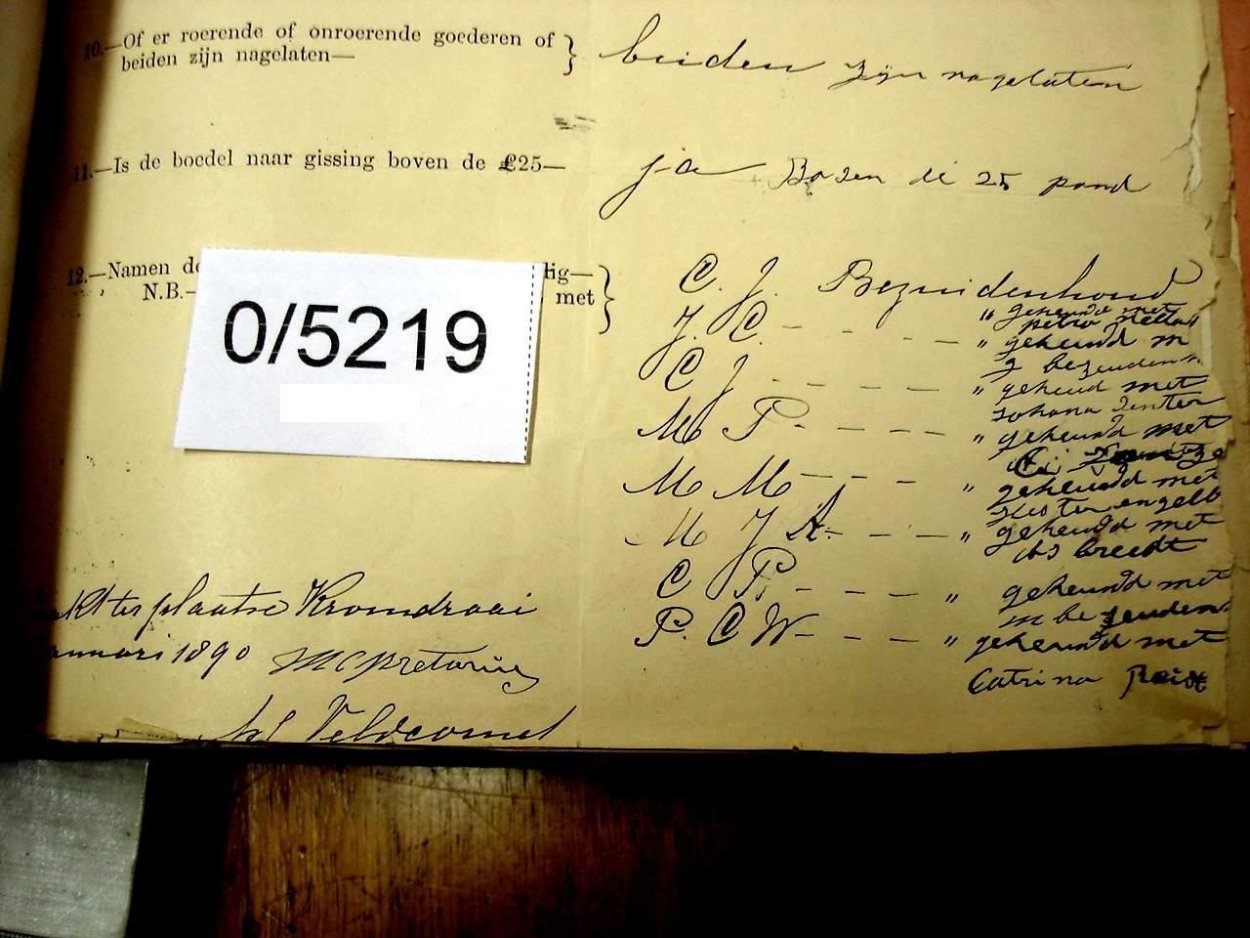 10.—Of er roerende of onroerende goederen of
beiden zijn nagelaten—
beiden zijn nagelaten
11.—Is de boedel naar gissing boven de £25—
ja Boven de 25 pond
12.—Namen de
dig—
N.B.—
met
0/5219
C. J. Bezuidenhoud
" geheuwd met
petro
J. C. - - - - " geheuwd m
J bezuiden
C J - - - - " geheud met
Johana Venter
M P - - - - " geheuwd met
M M - - - - " geheuwd met
Hester engelb
M J A - - - - " geheuwd met
breedt
C P. - - - - " geheuwd met
m bezuiden
P. C W - - - - " geheuwd met
Catrina
akt ter plaatse Kromdraai
anuari 1890 M C Pretorius
Veldcornet